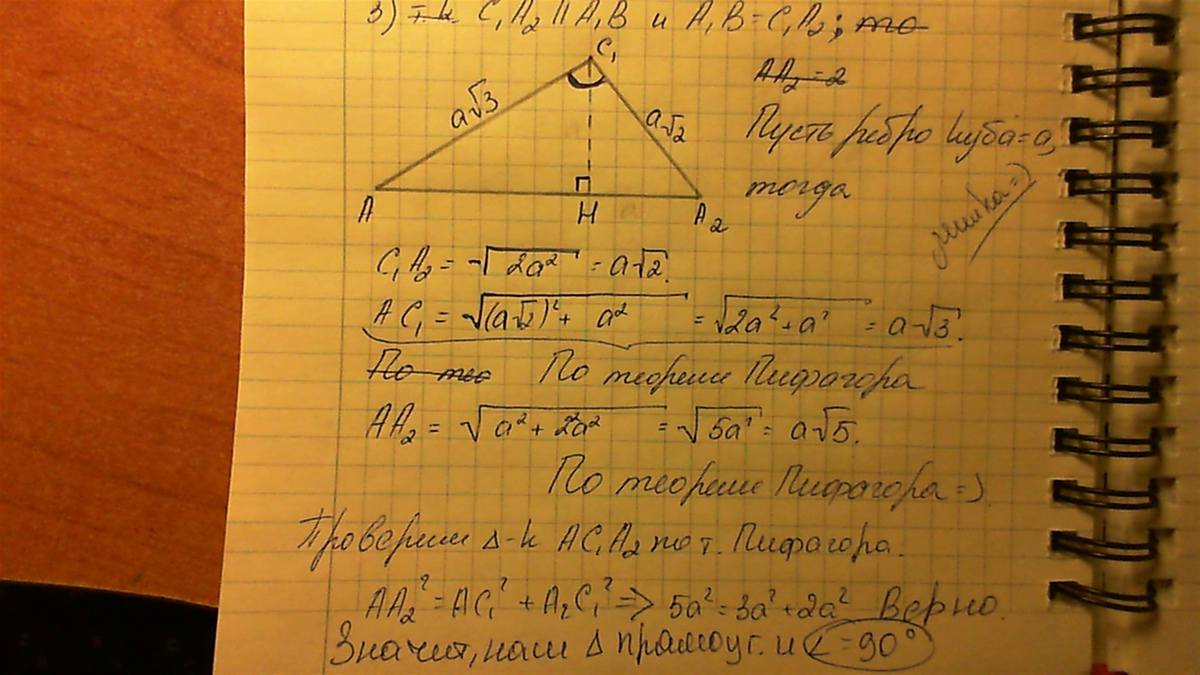 3) Т.к C₁A₂ || A₁B и A₁B = C₁A₂; то
AA₂ = 2
C₁
a√3
a√2
A
H
A₂
Пусть ребро куба = a,
тогда
C₁A₂ = √2a² = a√2.
AC₁ = √(a√2)² + a² = √2a² + a² = a√3.
По тео По теореме Пифагора
AA₂ = √a² + 2a² = √5a² = a√5.
По теореме Пифагора =>
Проверим Δ-к AC₁A₂ по т. Пифагора.
AA₂² = AC₁² + A₂C₁² => 5a² = 3a² + 2a² Верно.
Значит, наш Δ прямоуг. и ∠ = 90°